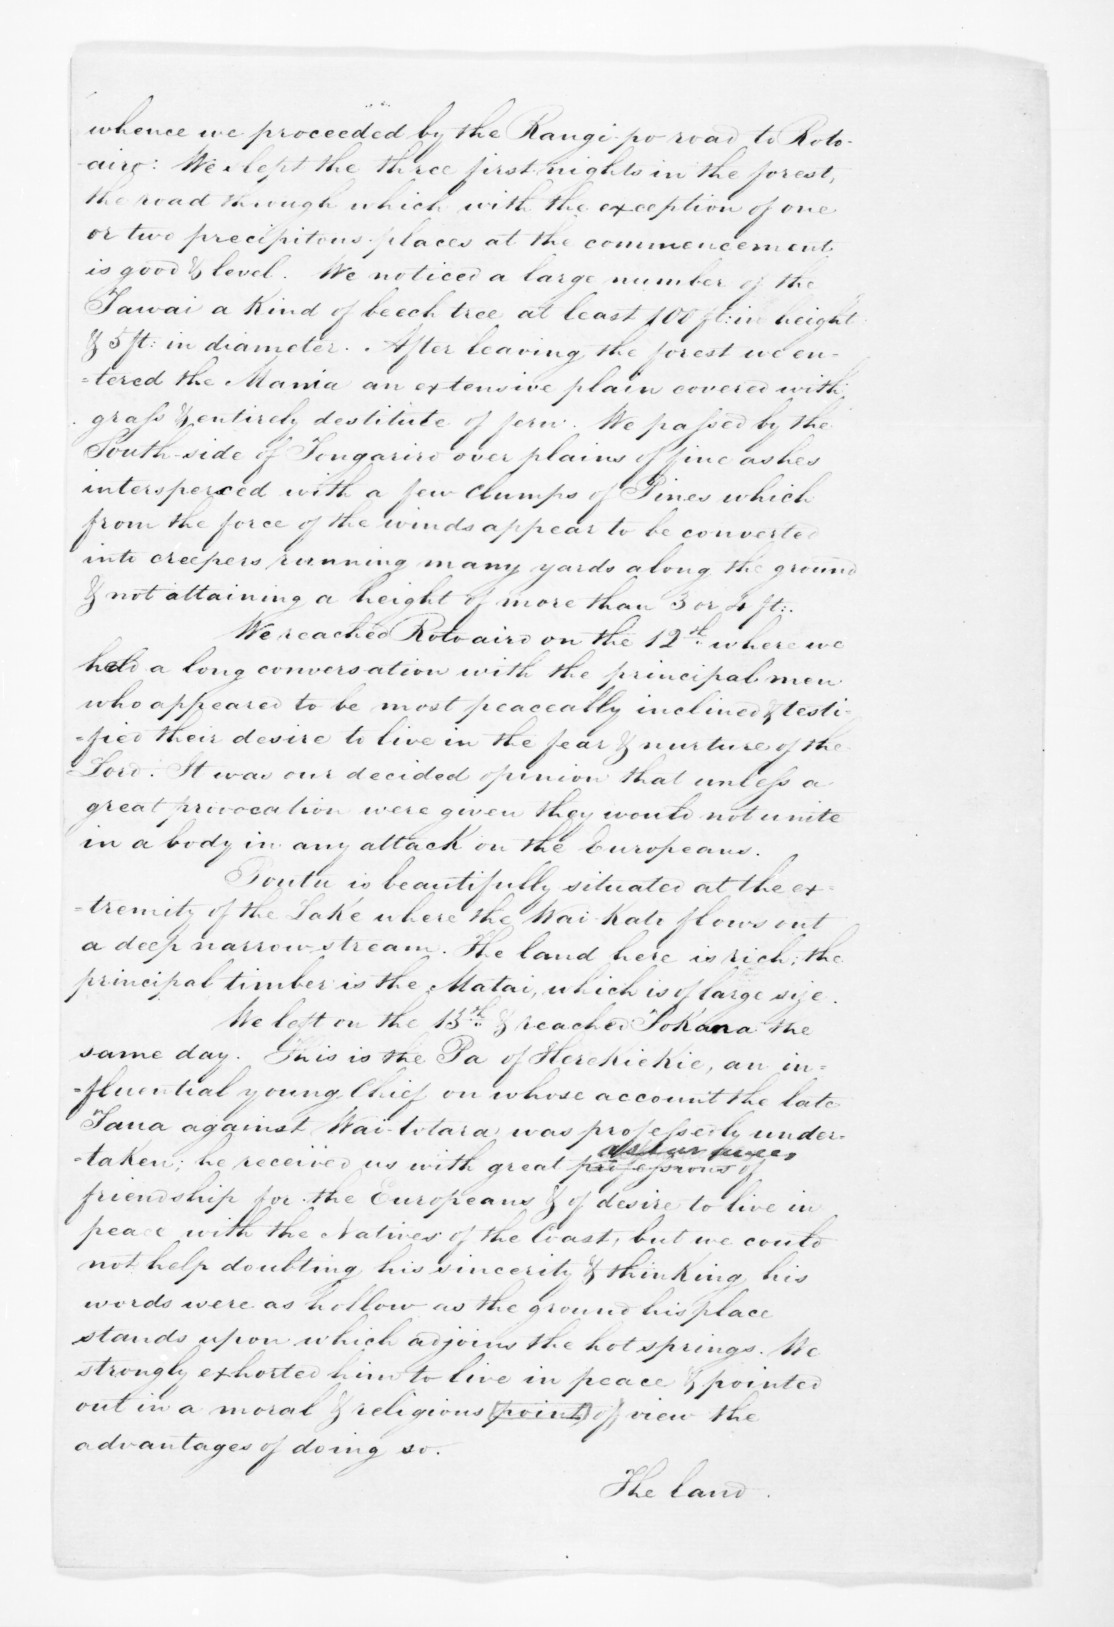 whence we proceeded by the Rangi-po road to Roto-
-airo: We slept the three first nights in the forest,
the road through which with the exception of one
or two precipitous places at the commencement
is good & level. We noticed a large number of the
Tawai a kind of beech tree at least 100 ft: in height
& 5 ft: in diameter. After leaving the forest we en-
=tered the Mania an extensive plain covered with
grass & entirely destitute of fern. We passed by the
South-side of Tongariro over plains of fine ashes
intersperced with a few clumps of Pines which
from the force of the winds appear to be converted
into creepers running many yards along the ground
& not attaining a height of more than 3 or 4 ft:.
We reached Roto-airo on the 12th. where we
held a long conversation with the principal men
who appeared to be most peaceally inclined & testi-
=fied their desire to live in the fear & nurture of the
=Lord. It was our decided opinion that unless a
great provocation were given they would not unite
in a body in any attack on the Europeans.
Poutu is beautifully situated at the ex-
=tremity of the Lake where the Wai-Kato flows out
a deep narrow stream. The land here is rich; the
principal timber is the Matai, which is of large size.
We left on the 13th. & reached Tokana the
same day. This is the Pa of HereKieKie, an in=
=fluential young Chief on whose account the late
Taua against Wai-totara was professedly under-
=taken; he received us with great professions assurances of
friendship for the Europeans & of desire to live in
peace with the Natives of the Coast, but we could
not help doubting his sincerity & thinking his
words were as hollow as the ground his place
stands upon which adjoins the hot springs. We
strongly exhorted him to live in peace & pointed
out in a moral & religious (point) of view the
advantages of doing so.
The land.